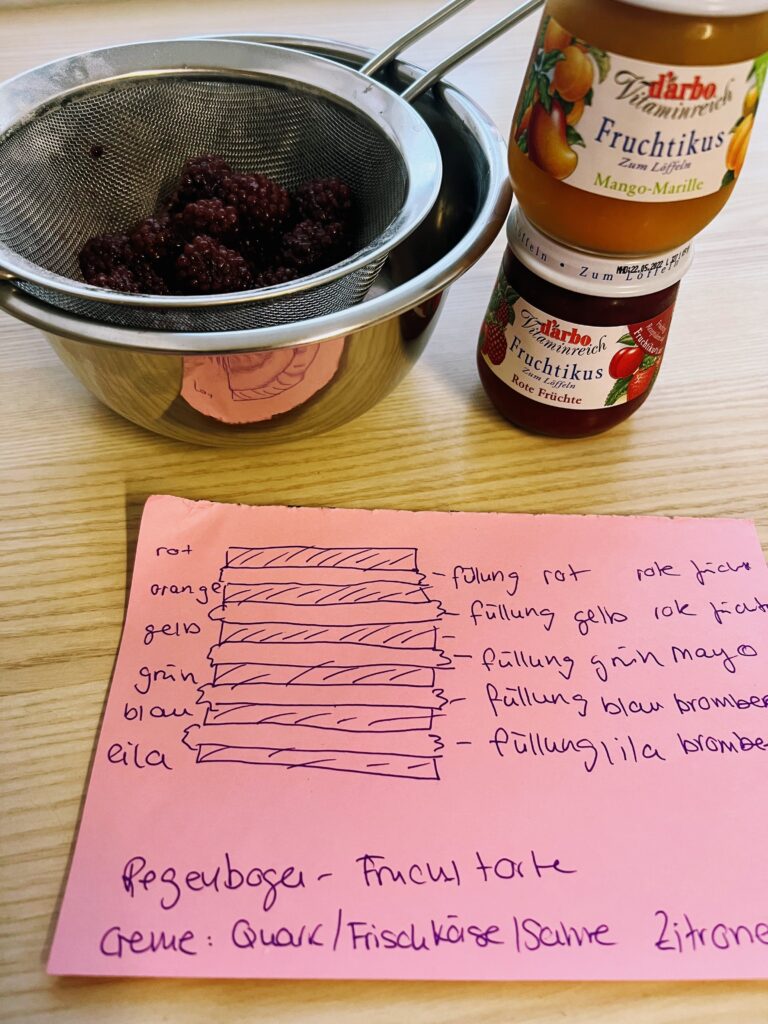 d'arbo
Vitaminreich
Fruchtikus
Zum Löffeln
Mango-Marille
Zum Löffeln
MHD:22.05.2022
d'arbo
Vitaminreich
Fruchtikus
Zum Löffeln
Rote Früchte
rot
fülung rot rote
orange
füllung gelb rote
gelb
füllung grün mayo
grün
füllung blau brombee
blau
füllung lila brombe
lila
Regenbogen - Frucht torte
Creme: Quark/Frischkäse/Sahne Zitrone